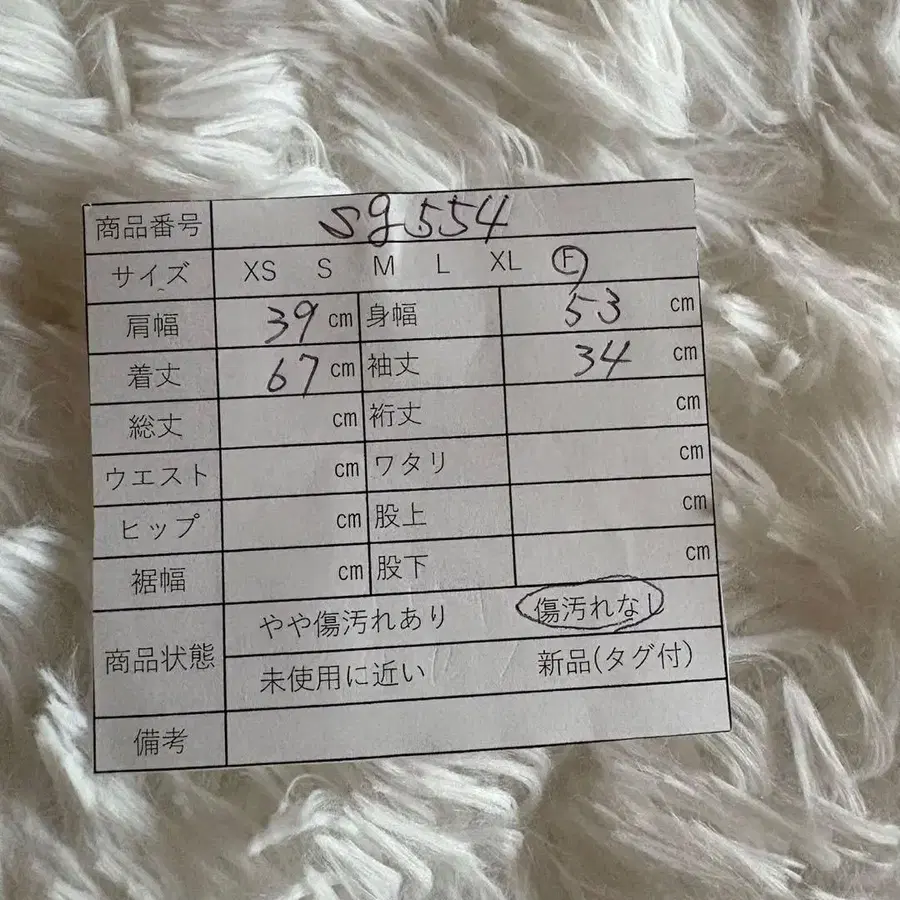 商品番号 sg554
サイズ XS S M L XL F
肩幅 39 cm 身幅 53 cm
着丈 67 cm 袖丈 34 cm
総丈 cm 裄丈 cm
ウエスト cm ワタリ cm
ヒップ cm 股上 cm
裾幅 cm 股下 cm
商品状態 やや傷汚れあり 傷汚れなし
未使用に近い 新品(タグ付)
備考